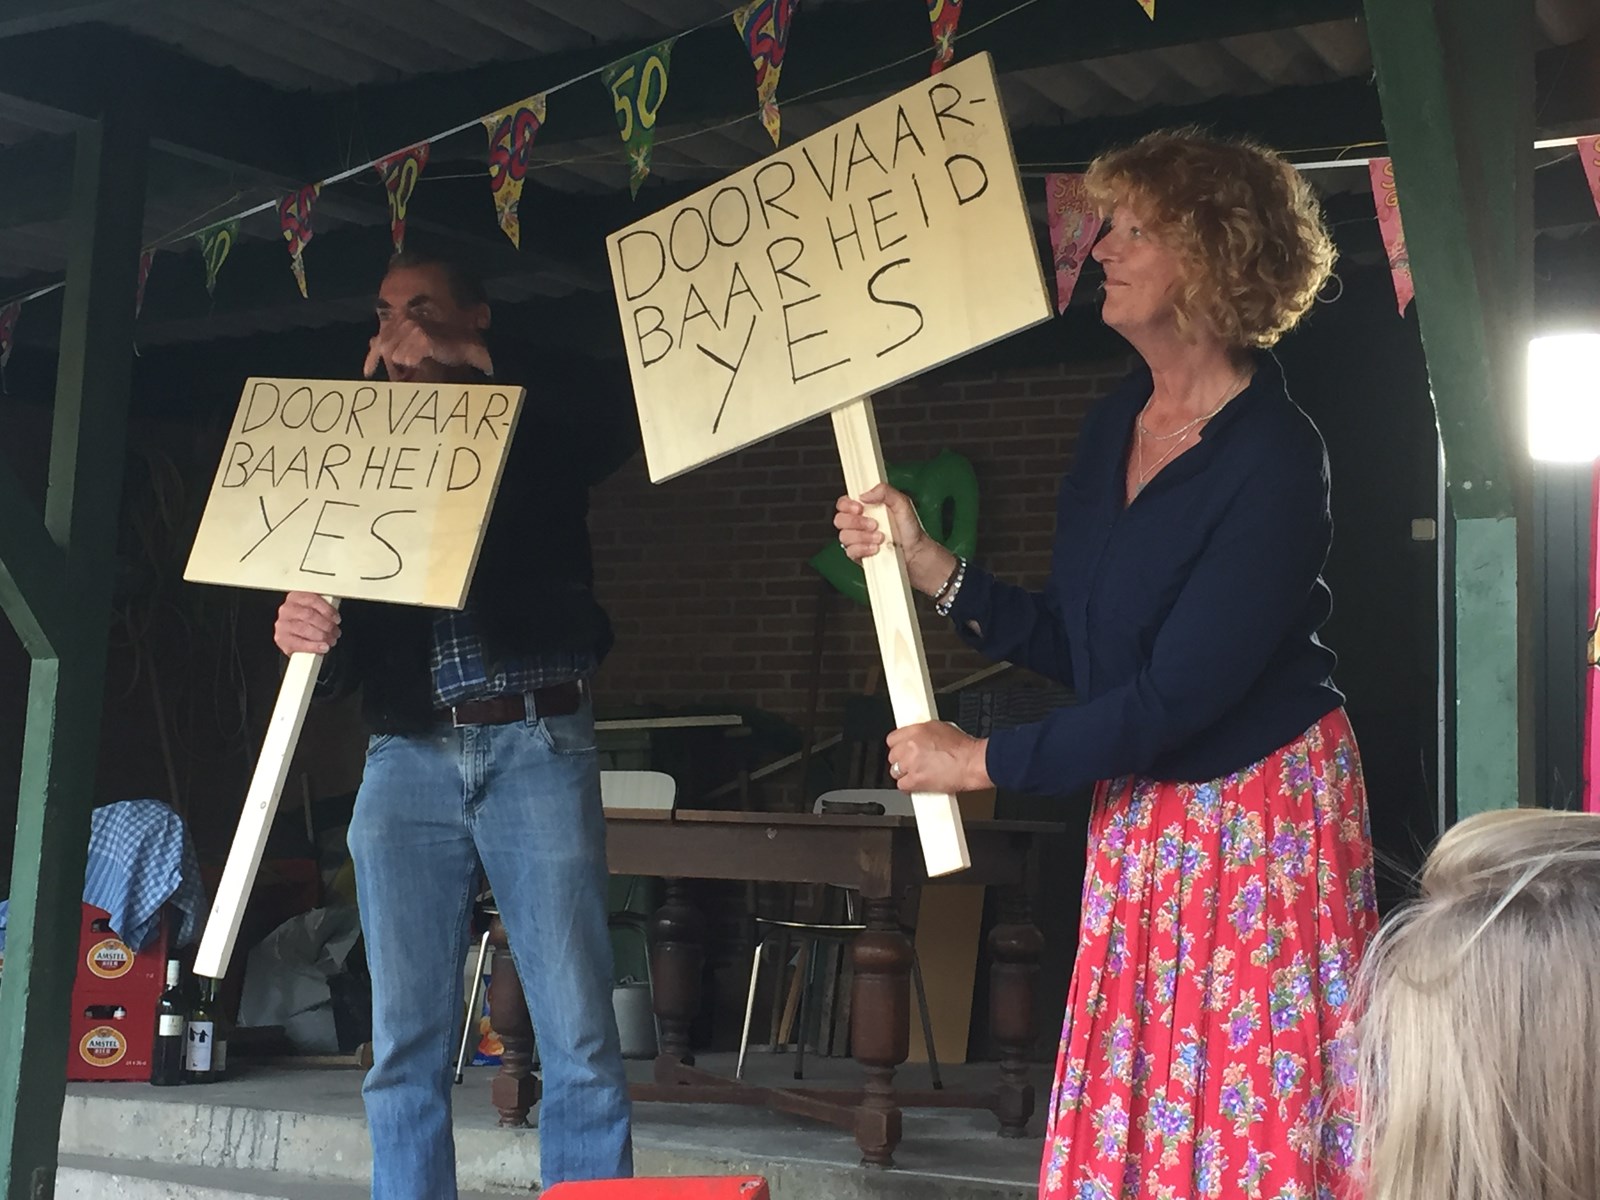 50
50
50
50
50
DOORVAAR-
BAARHEID
YES
DOORVAAR-
BAARHEID
YES
AMSTEL
BIER
AMSTEL
BIER